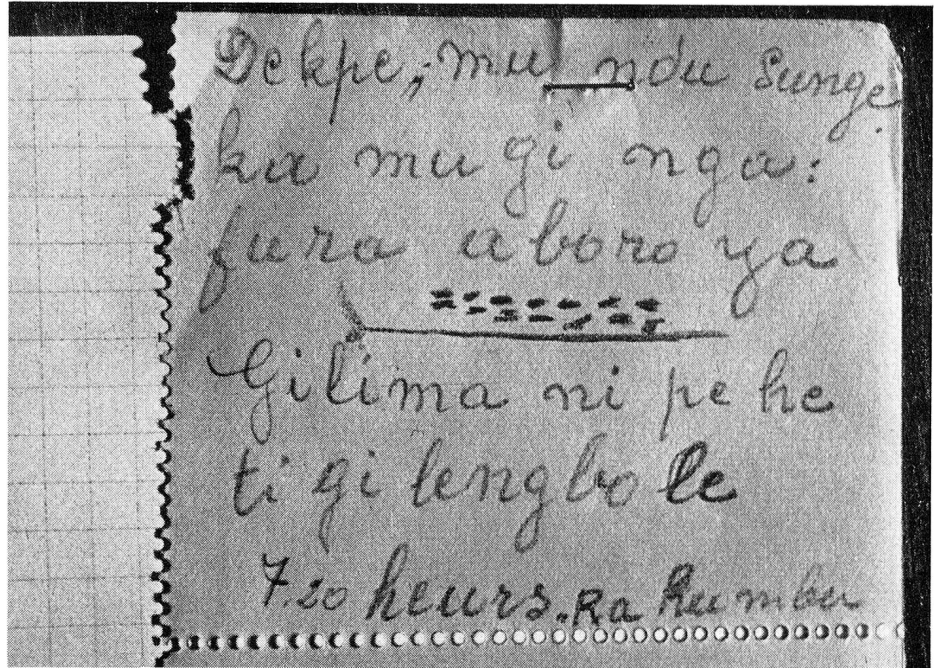 Dekpe; mu ndu Sunge
ka mu gi nga:
fura aboro ya
Gilima ni pe he
ti gi lengbo le
7.20 heurs. Ra Rumbu